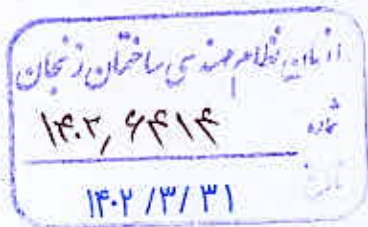 سازمان نظام مهندسی ساختمان زنجان
شماره ۱۴۰۲,۶۴۱۴
تاریخ ۱۴۰۲/۳/۳۱